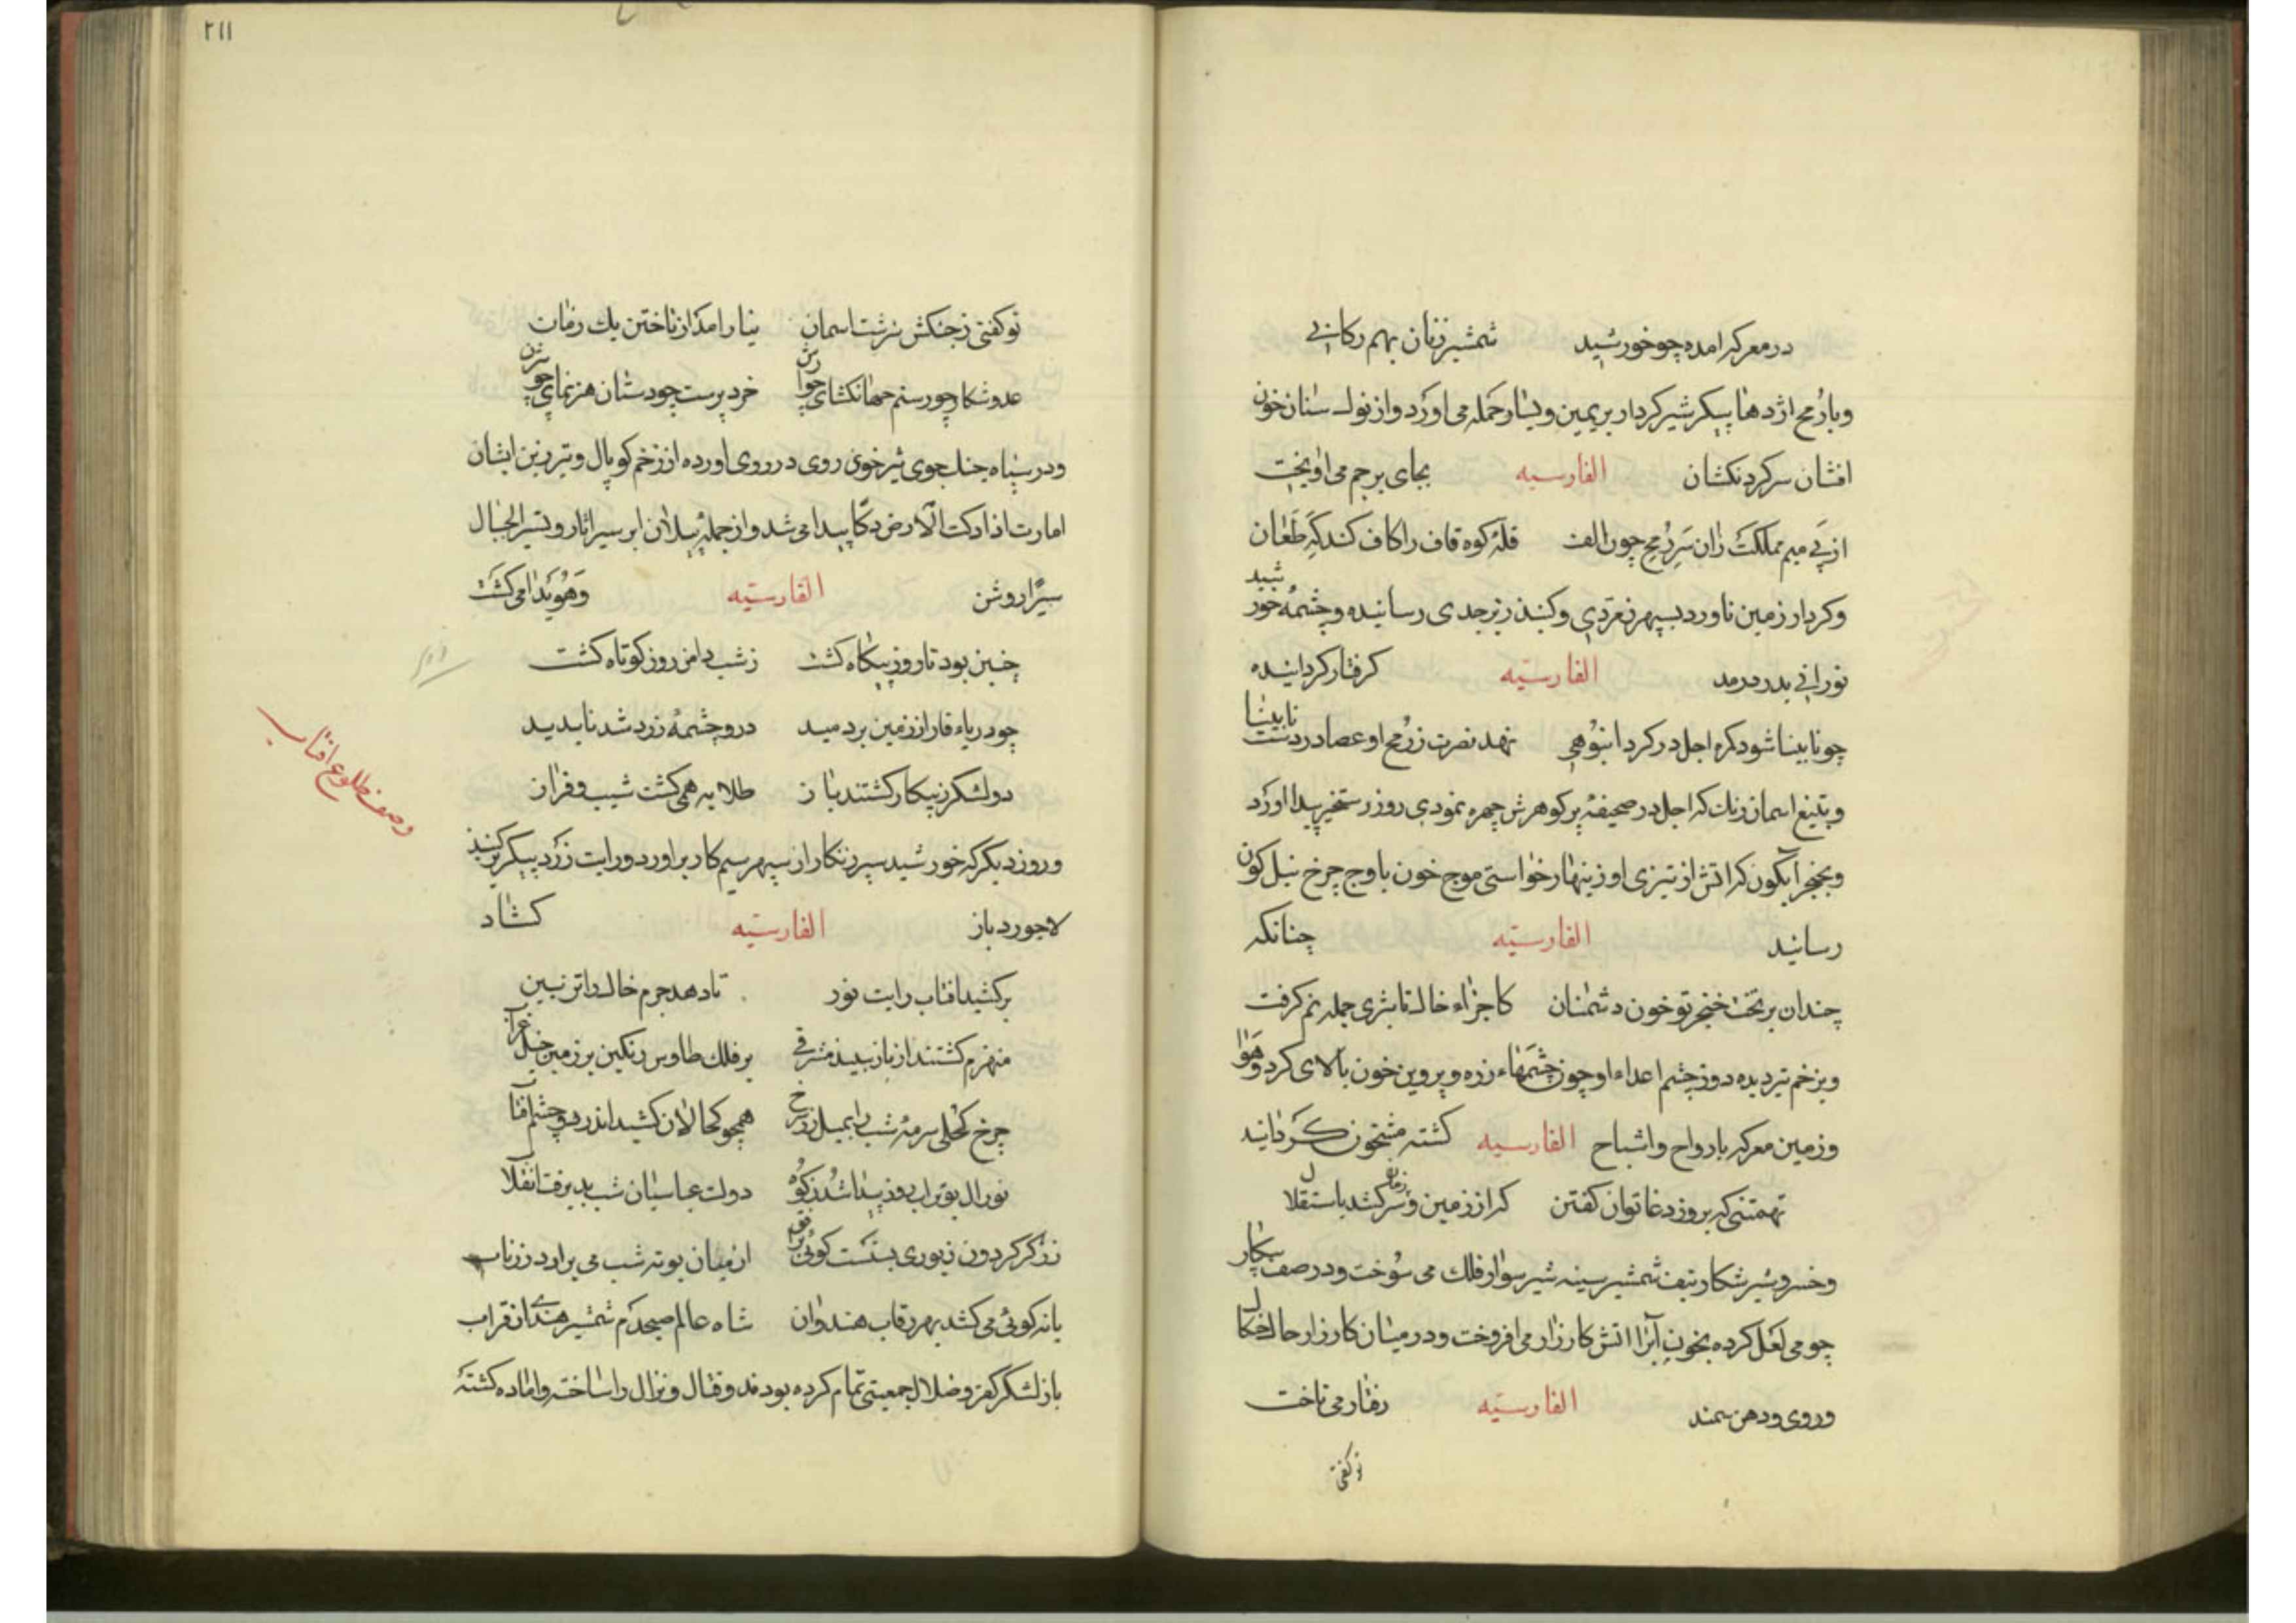 در معرکه امده چو خورشید شمشیر زنان بهم رکابی
و بارمح اژدها پیکر شیر کردار بر یمین و یسار حمله می اورد و از نوک سنان خون
افشان سر کردنکشان الفارسیه بجای برجم می اویخت
از پی میم مملکت زان سر رمح چون الف قله کوه قاف را کاف کند که طعان
و کردار زمین ناورد بسپهر زمردی و کنبذ زبرجدی رسانیده و چشمه خورشید
نورانی بدر درمد الفارسیه کرفتار کردانیده
چو نابینا شود کره اجل در کرد انبوهی نهد نصرت ز رمح او عصا در دست نابینا
و بتیغ اسمان رنک که اجل در صحیفه پر کوهرش چهره نمودی روز رستخیز پیدا اورد
و بخنجر آبکون که اتش از تیزی او زینهار خواستی موج خون باوج چرخ نیل کون
رسانید الفارسیه چنانکه
چندان بریخت خنجر تو خون دشمنان کاجزاء خاک تا بثری جمله نم کرفت
و بزخم تیر دیده دوز چشم اعداء او چون چشمهاء زره و پروین خون بالای کرد و هوا
و زمین معرکه بارواح و اشباح الفارسیه کشته مشحون کردانید
تهمتنی که بروز دغا توان کفتن که از زمین و زمان سر کشد باستقلال
و خسرو شیر شکار بتف شمشیر سینه شیر سوار فلک می سوخت و در صف پیکار
چو می لعل کرده بخون آبرا اتش کارزار می افروخت و در میان کارزار حال
و روی و دهن سمند الفارسیه رفتار می تاخت
تو کفتی
٢١١
تو کفتی ز جنکش سرشت اسمان نیارامد از تاختن یک زمان
عدو شکار چو رستم جهانکشای چو خرد پرست چو دستان هنر نمای چو
و در سپاه جنک جوی شر خوی روی در روی اورده از زخم کوپال و تبرزین ایشان
امارت اذا دکت الارض دکا پیدا می شد و از حمله پیلان ابر سیر اثار و تسیر الجبال
سیرا روشن الفارسیه و هویدا می کشت
چنین بود تا روز بیکاه کشت ز شب دامن روز کوتاه کشت
چو دریاء قار از زمین بردمید درو چشمه زرد شد ناپدید
دو لشکر ز پیکار کشتند باز طلایه همی کشت شیب و فراز
وصف طلوع افتاب
و روز دیکر که خورشید سپر زنکار از سپهر سیم کار براورد و رایت زرد پیکر بر کنبذ
لاجورد باز الفارسیه کشاد
برکشید افتاب رایت نور تا دهد جرم خاک را تزیین
منهزم کشتند از باز سپید مشرقی بر فلک طاوس رنکین بر زمین خیل غراب
چرخ کحلی سرمه شب را بمیل زر سرخ همچو کحالان کشید اندر دو چشم افتاب
نور ال بوتراب روز پیدا شد ز کوه دولت عباسیان شب پذیرفت انقلاب
زرکر کردون زیوری بشکست کوئی از میان بوته شب می برارد زر ناب
یا نه کوئی می کشد بهر رقاب هندوان شاه عالم صبحدم شمشیر هندی از قراب
باز لشکر کفر و ضلال جمعیتی تمام کرده بودند و قتال و نزال را ساخته و اماده کشته